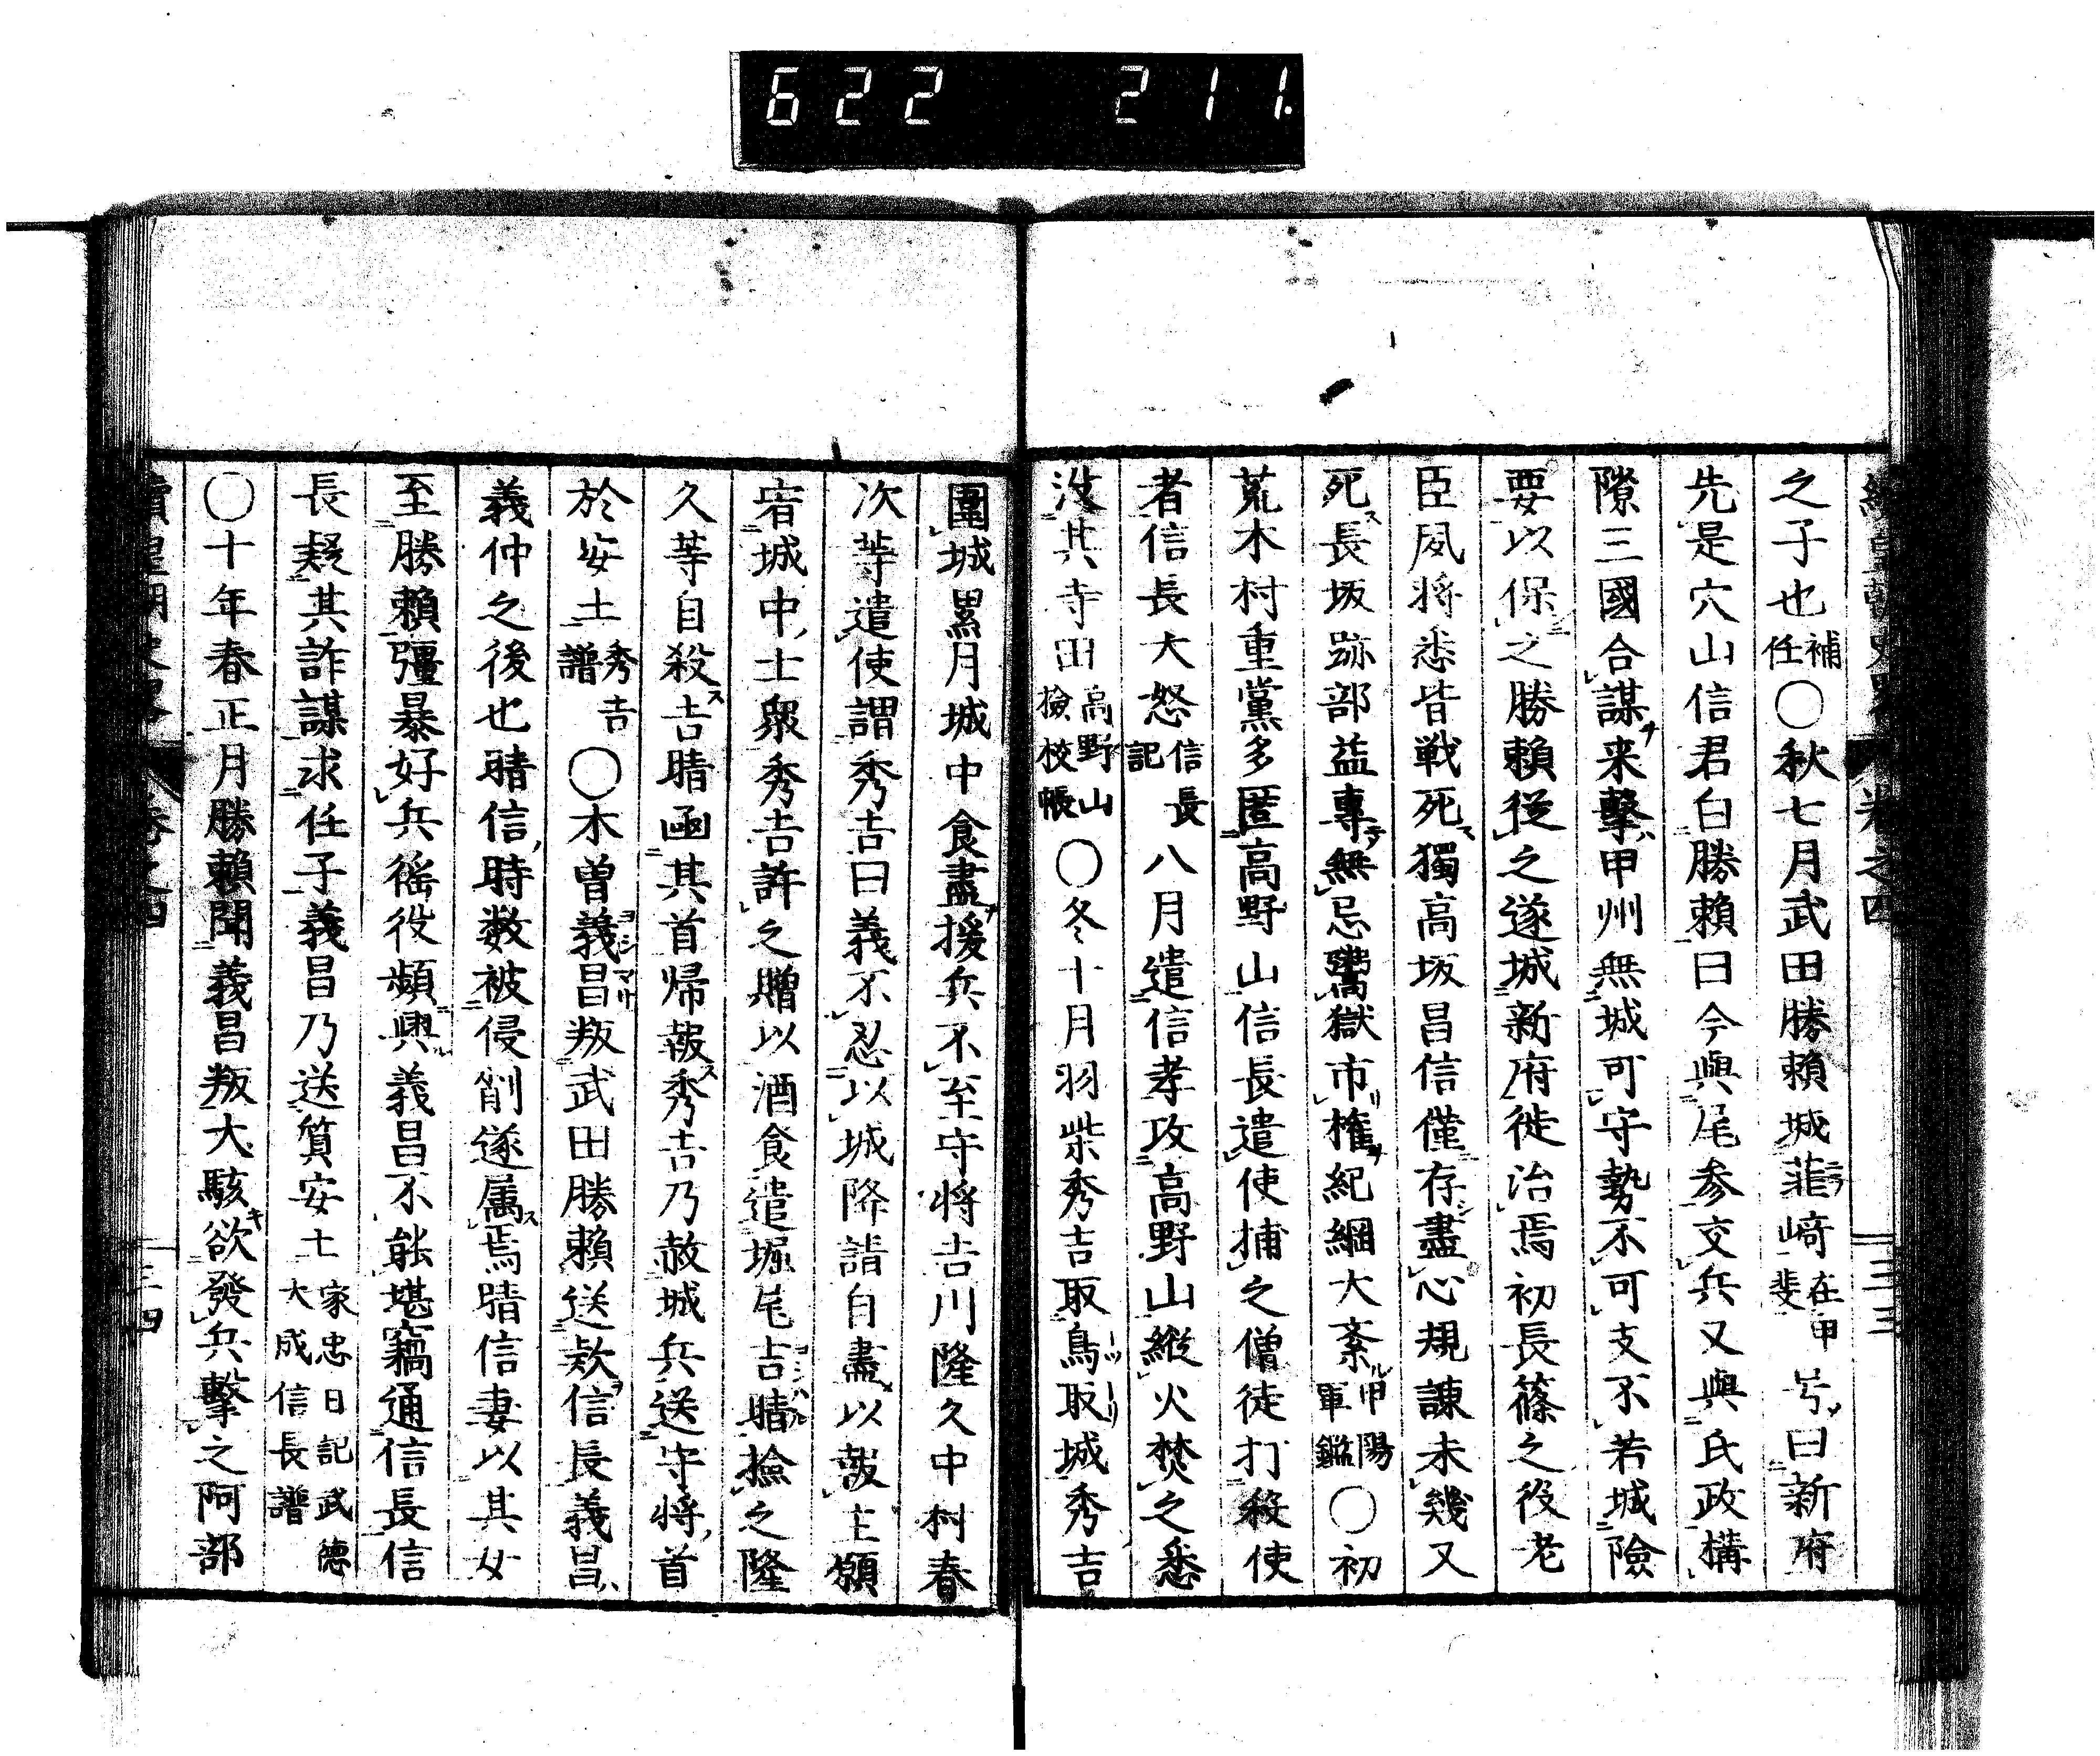 622 211.
之子也補任〇秋七月武田勝頼城韮﨑在甲斐号曰新府
先是穴山信君白勝頼曰今與尾参交兵又與氏政構
隙三國合謀来撃甲州無城可守勢不可支不若城險
要以保之勝頼従之遂城新府徙治焉初長篠之役老
臣夙将悉皆戦死獨高坂昌信僅存盡心規諌未幾又
死長坂跡部益專無忌鬻獄市権紀綱大紊甲陽軍鑑〇初
荒木村重黨多匿高野山信長遣使捕之僧徒打殺使
者信長大怒信長記八月遣信孝攻高野山縦火焚之悉
没其寺田高野山撿校帳〇冬十月羽柴秀吉取鳥取城秀吉
圍城累月城中食盡援兵不至守将吉川隆久中村春
次等遣使謂秀吉曰義不忍以城降請自盡以報主願
宥城中士衆秀吉許之贈以酒食遣堀尾吉晴撿之隆
久等自殺吉晴函其首帰報秀吉乃赦城兵送守将首
於安土秀吉譜〇木曽義昌叛武田勝頼送欵信長義昌
義仲之後也晴信時数被侵削遂属焉晴信妻以其女
至勝頼彊暴好兵徭役頻興義昌不能堪竊通信長信
長疑其詐謀求任子義昌乃送質安土家忠日記武徳大成信長譜
〇十年春正月勝頼聞義昌叛大駭欲發兵撃之阿部
巻之四 三四